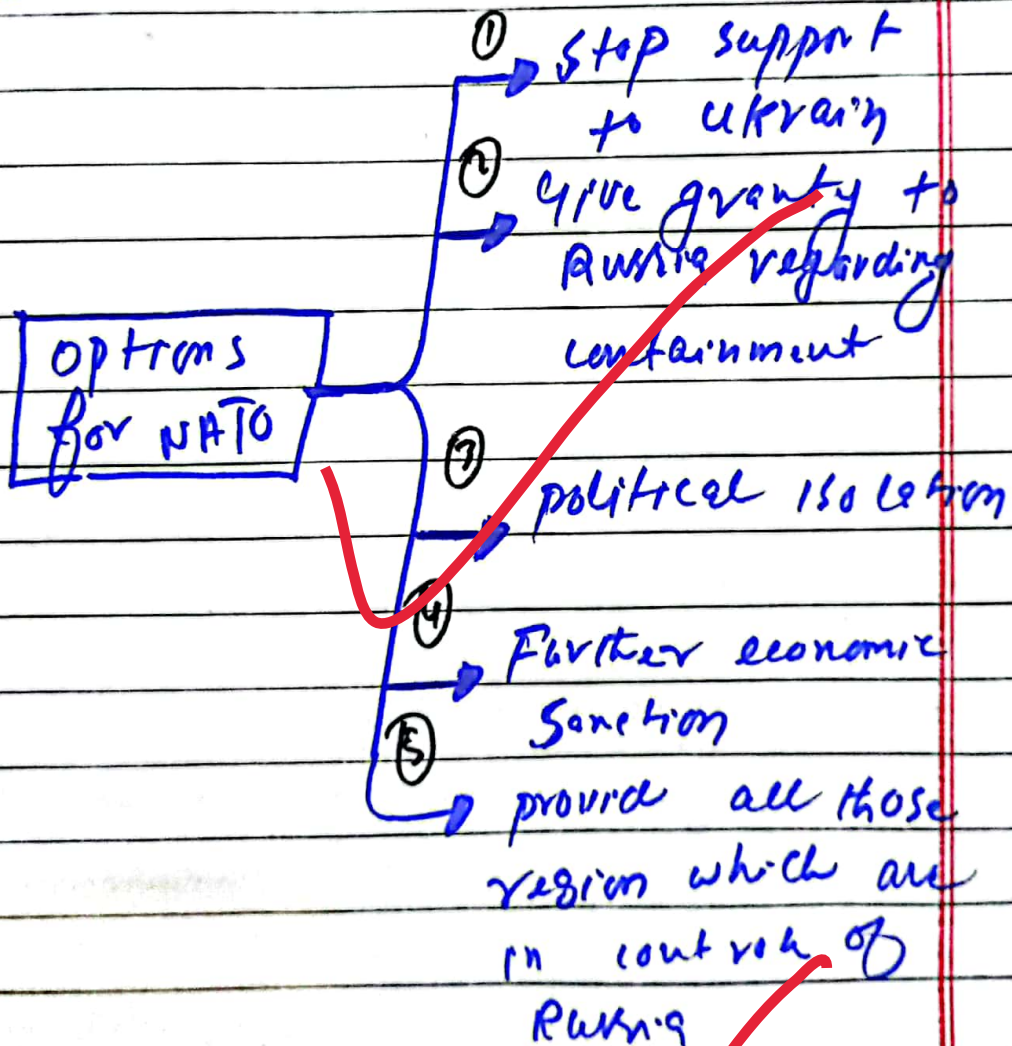 ①
stop support
to Ukrain
②
Give granty to
Russia regarding
containment
options
for NATO
③
political isolation
④
Further economic
Sanction
⑤
provid all those
region which are
in control of
Russia